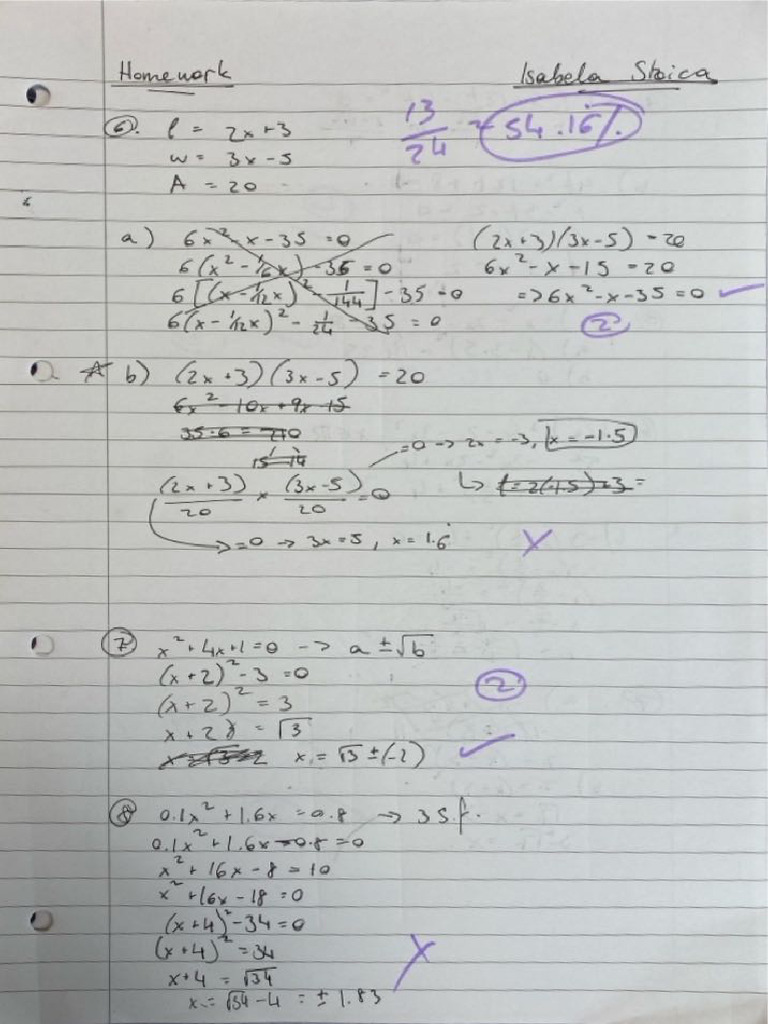 Homework
Isabela Stoica
13/24 = 54.16%
6. l = 2x+3
w = 3x-5
A = 20
a) 6x² - x - 35 = 0
6(x² - 1/6x) - 35 = 0
6[(x - 1/12x)² - 1/144] - 35 = 0
6(x - 1/12x)² - 1/24 - 35 = 0
(2x+3)(3x-5) = 20
6x² - x - 15 = 20
=> 6x² - x - 35 = 0 ✓
2
b) (2x+3)(3x-5) = 20
6x² - 10x + 9x - 15
35·6 = 210
15 14
(2x+3)/20 × (3x-5)/20 = 0
=0 → 2x = -3, x = -1.5
=0 → 3x = 5, x = 1.6̇
✗
7 x² + 4x + 1 = 0 → a ± √b
(x+2)² - 3 = 0
(x+2)² = 3
2
x + 2 = √3
x = √3 ± (-2) ✓
8 0.1x² + 1.6x = 0.8 → 3 s.f.
0.1x² + 1.6x - 0.8 = 0
x² + 16x - 8 = 10
x² + 16x - 18 = 0
(x+4)² - 34 = 0
(x+4)² = 34
✗
x+4 = √34
x = √34 - 4 = ± 1.83